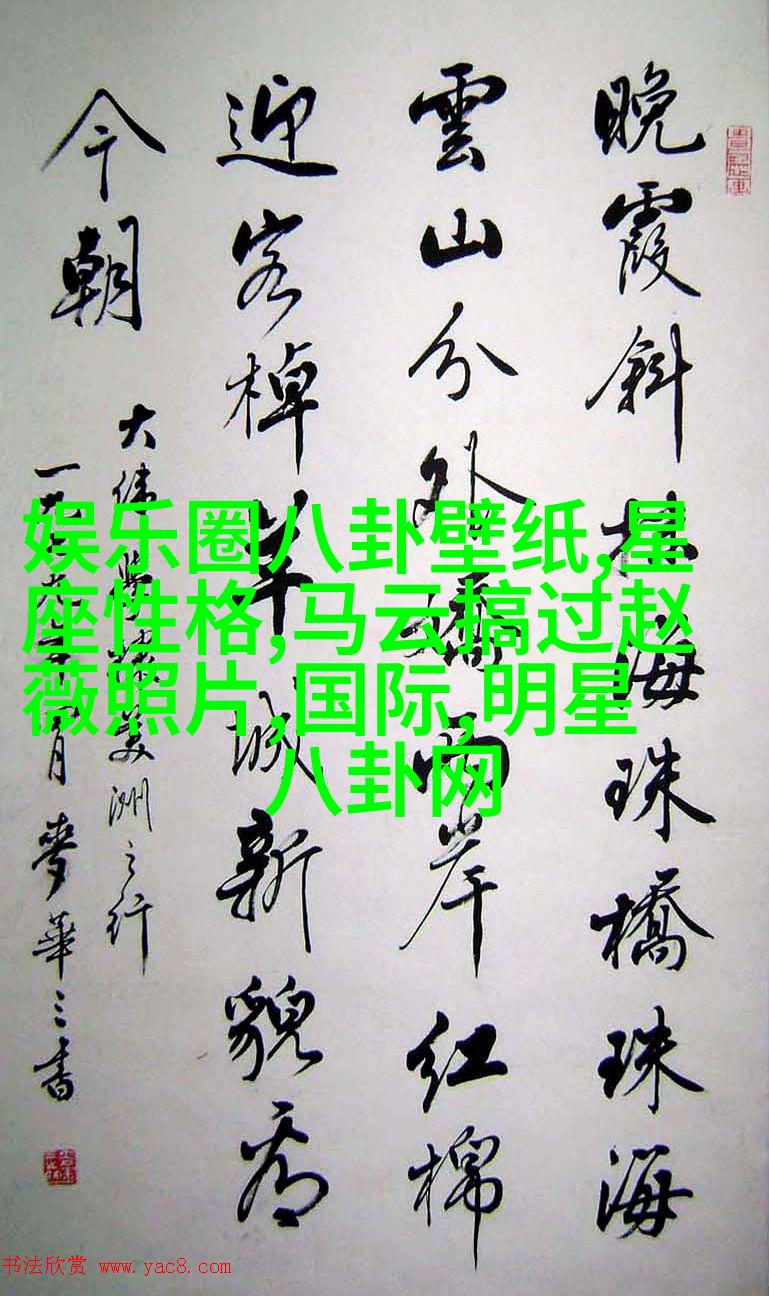 晚霞斜抹海珠橋珠海
雲山分外嬌兩岸紅棉
迎客棹羊城新貌看
今朝
大偉美洲之行
一九月麥華三書
娱乐圈八卦壁纸,星
座性格,马云搞过赵
薇照片,国际,明星
八卦网
书法欣赏 www.yac8.com